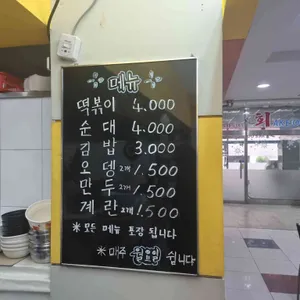 메뉴
떡볶이 4.000
순대 4.000
김밥 3.000
오뎅 2개 1.500
만두 2개 1.500
계란 2개 1.500
※ 모든 메뉴 포장 됩니다
※ 매주 월요일 쉽니다